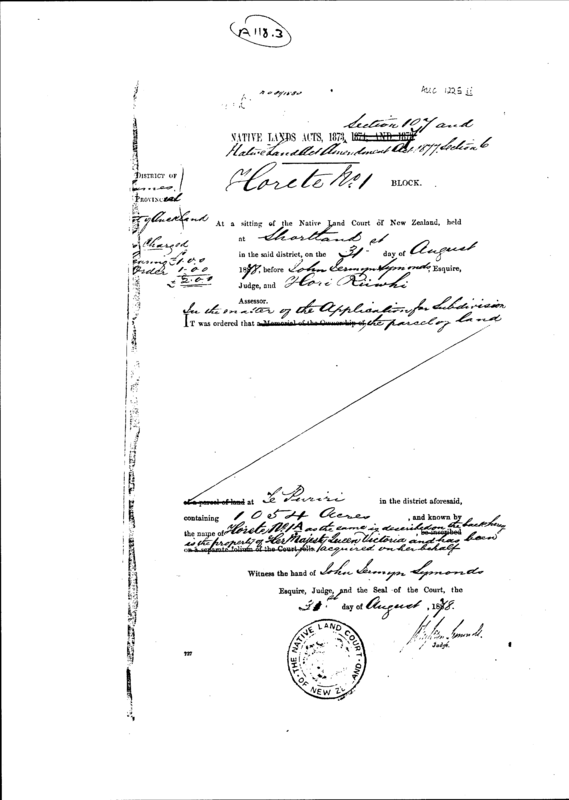 A 118.3
NATIVE LANDS ACTS, 1873, 1874, AND 1878 Section 107 and
Native Land Act Amendment Act 1877 Section 6
Horete No 1 BLOCK.
DISTRICT OF
PROVINCIAL
of Auckland
At a sitting of the Native Land Court of New Zealand, held
at Shortland
in the said district, on the 31st day of August
1878, before John Jermyn Symonds Esquire,
Judge, and Hori Riiwhi
Assessor.
Charged
Order 1.0.0
£2.0.0
In the matter of the Application for Subdivision
IT was ordered that a Memorial of the Ownership of the parcel of land
of a parcel of land at Te Puriri in the district aforesaid,
containing 1054 Acres, and known by
the name of Horete No 1A as the same is described on the back hereof be inscribed
is the property of Her Majesty Queen Victoria and has been
on a separate folium of the Court rolls acquired on her behalf
Witness the hand of John Jermyn Symonds
Esquire, Judge, and the Seal of the Court, the
31st day of August, 1878.
Judge.
THE NATIVE LAND COURT OF NEW ZEALAND
727